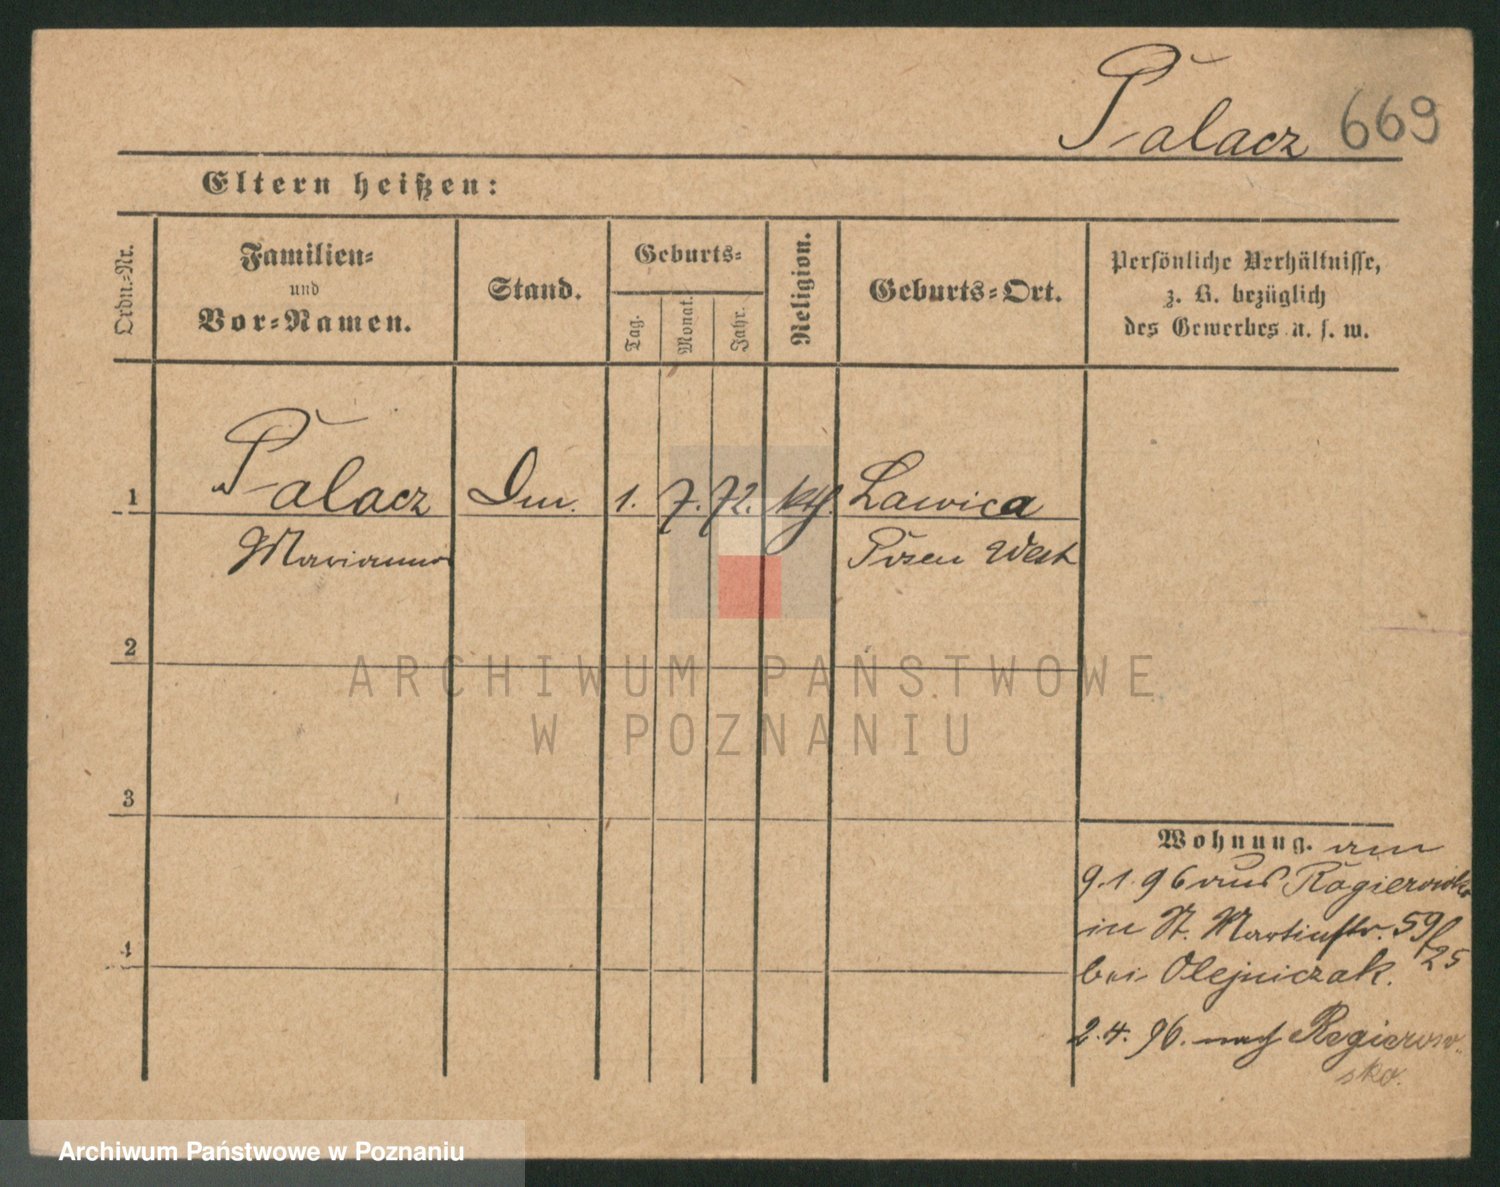 Palacz 669
Eltern heißen:
Ordn.-Nr.
Familien-
und
Vor-Namen.
Stand.
Geburts-
Tag.
Monat.
Jahr.
Religion.
Geburts-Ort.
Persönliche Verhältnisse,
z. B. bezüglich
des Gewerbes u. s. w.
1 Palacz 1. 7. 72. kth. Lawica
Marianna Posen West
2
3
4
Wohnung. am
9.1.96 aus Rogierowko
in St. Martinstr. 59/25
bei Olejniczak.
2.4.96. nach Rogierow-
sko.
ARCHIWUM PAŃSTWOWE
W POZNANIU
Archiwum Państwowe w Poznaniu